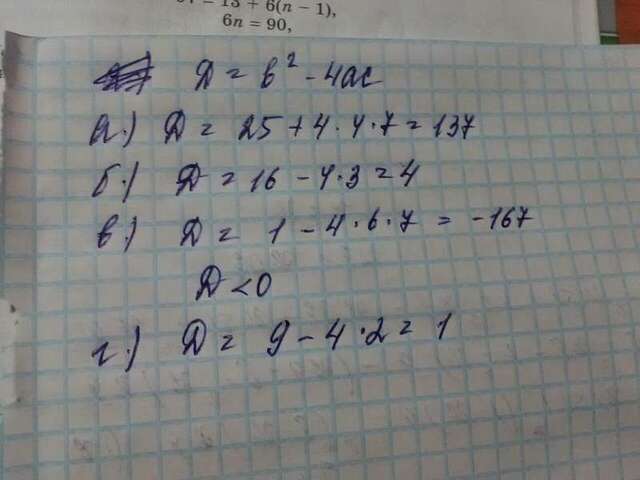 = 13 + 6(n − 1),
6n = 90,
D = b² - 4ac
а.) D = 25 + 4 · 4 · 7 = 137
б.) D = 16 - 4 · 3 = 4
в.) D = 1 - 4 · 6 · 7 = -167
D < 0
г.) D = 9 - 4 · 2 = 1